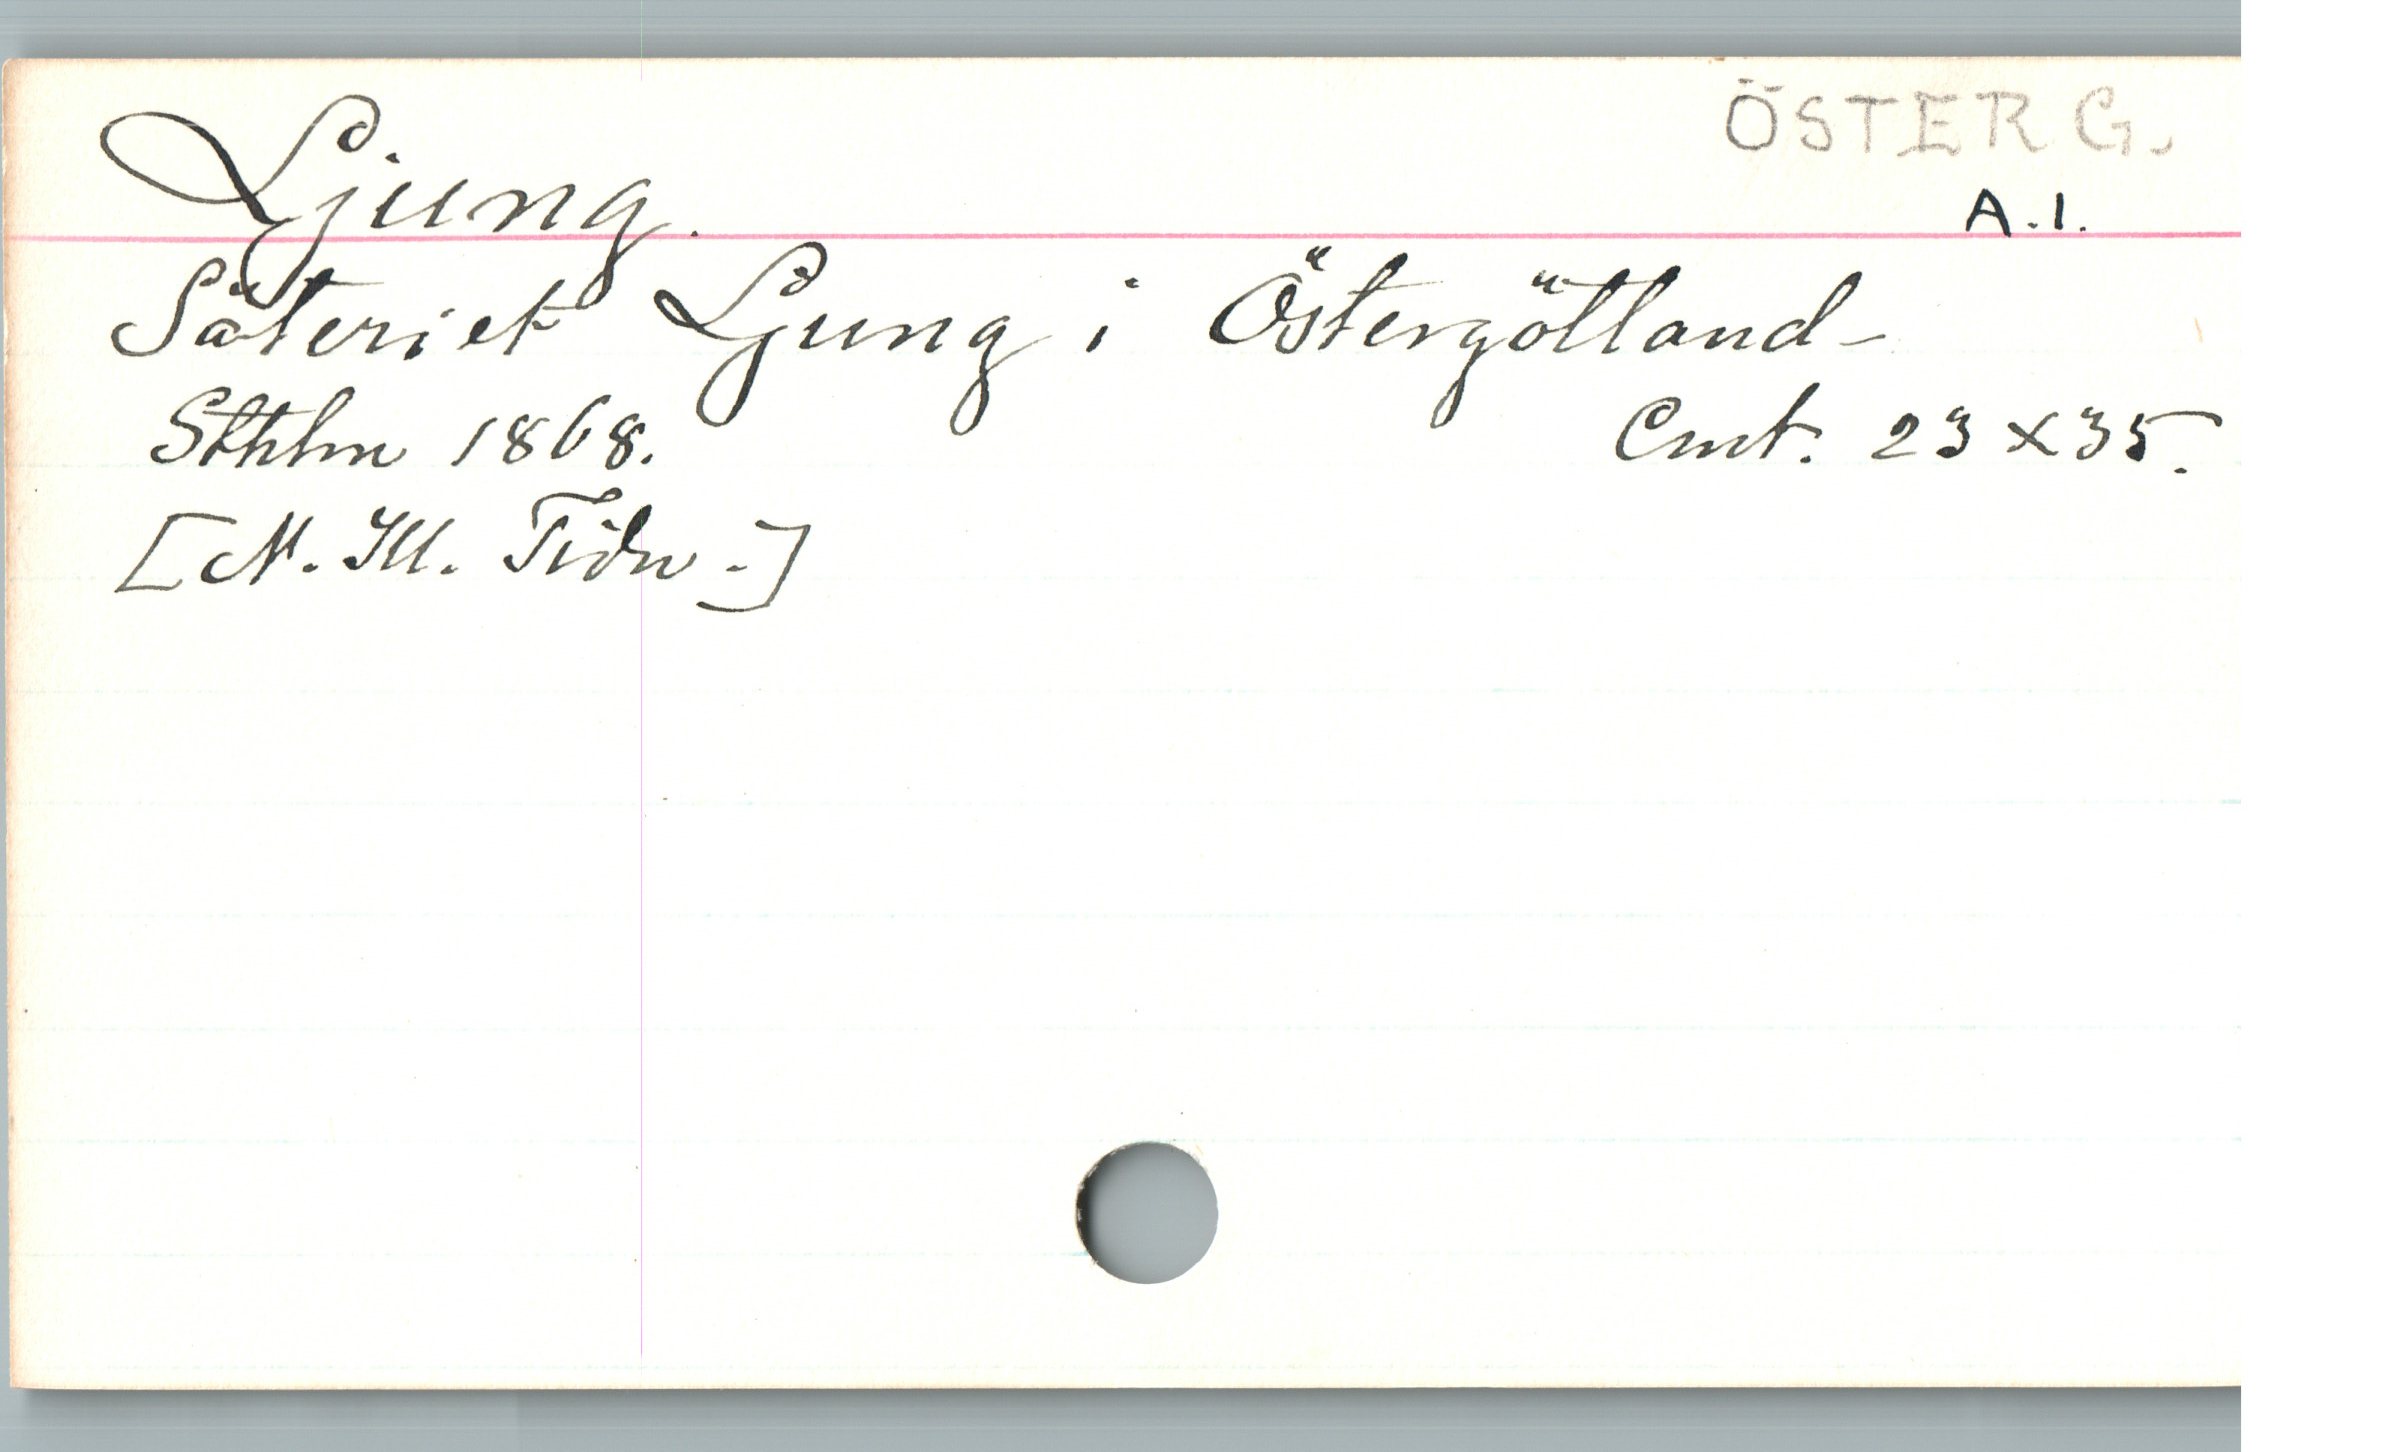 ÖSTERG.
Ljung.
A.1.
Säteriet Ljung i Östergötland-
Sthlm 1868. Cmt. 23 x 35.
[N. Ill. Tidn.-]